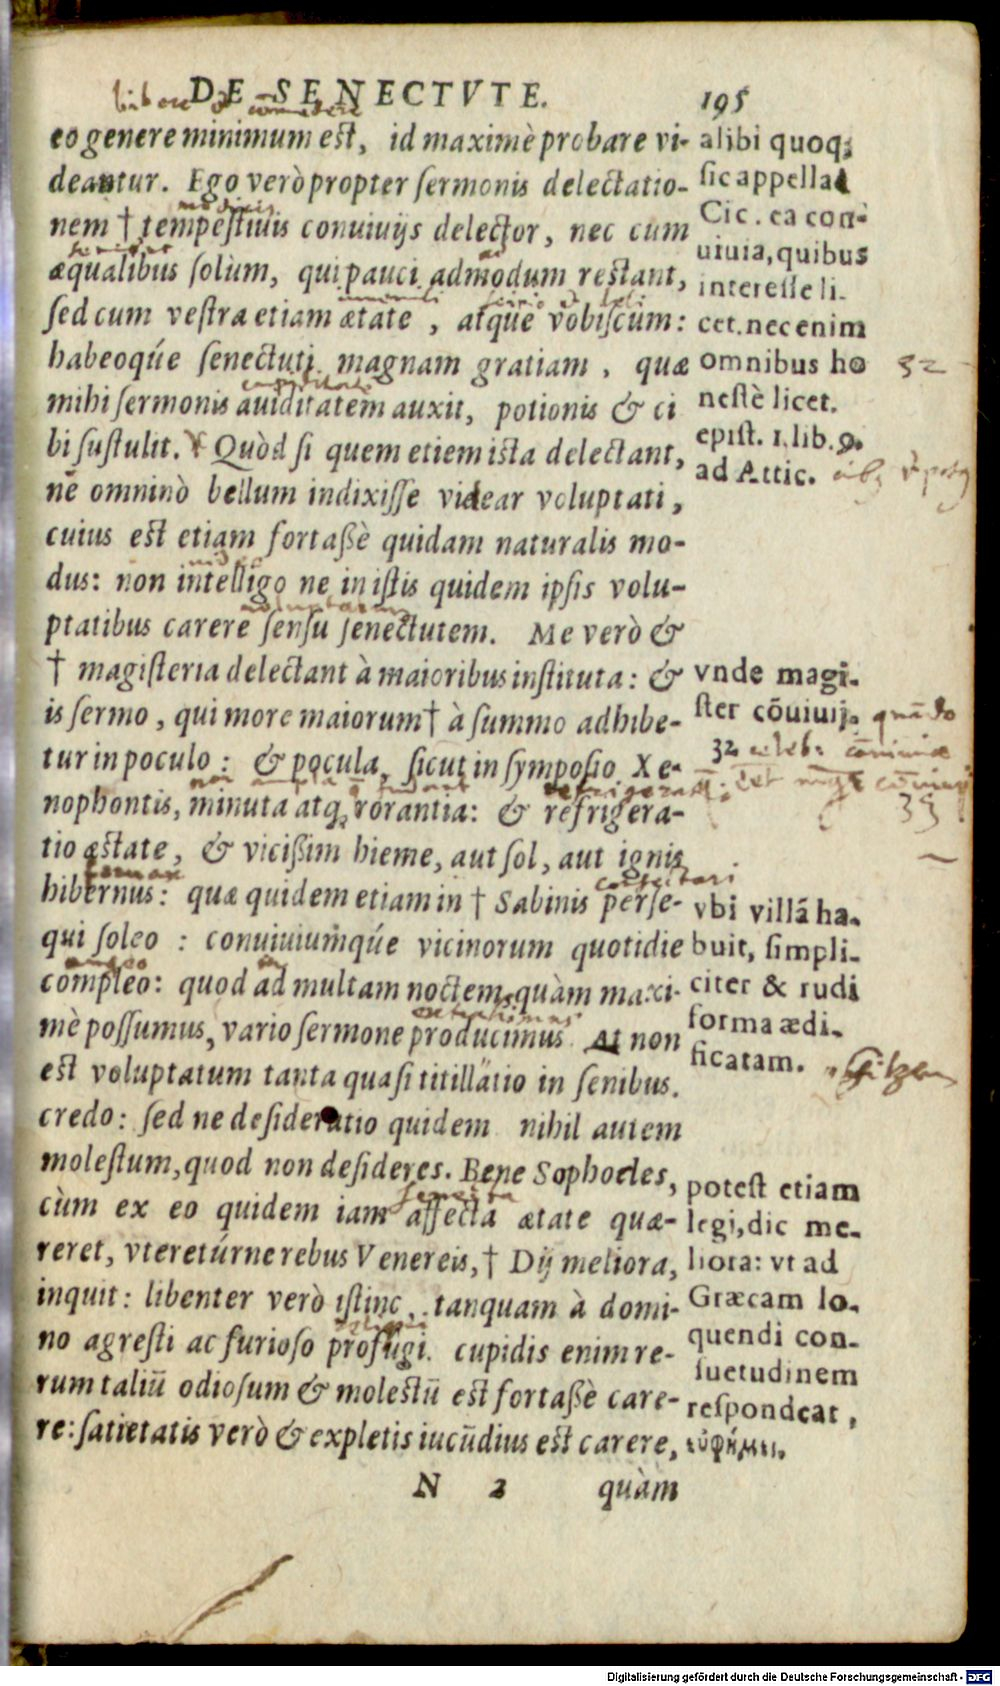 DE SENECTVTE. 195
eo genere minimum est, id maximè probare vi-
deantur. Ego verò propter sermonis delectatio-
nem † tempestiuis conuiuijs delector, nec cum
æqualibus solùm, qui pauci admodum restant,
sed cum vestra etiam ætate, atque vobiscum:
habeoqúe senectuti magnam gratiam, quæ
mihi sermonis auiditatem auxit, potionis & ci
bi sustulit. Quòd si quem etiem ista delectant,
ne omninò bellum indixisse videar voluptati,
cuius est etiam fortaßè quidam naturalis mo-
dus: non intelligo ne in istis quidem ipsis volu-
ptatibus carere sensu senectutem. Me verò &
† magisteria delectant à maioribus instituta: &
is sermo, qui more maiorum † à summo adhibe-
tur in poculo: & pocula, sicut in symposio Xe-
nophontis, minuta atq; rorantia: & refrigera-
tio æstate, & vicißim hieme, aut sol, aut ignis
hibernus: quæ quidem etiam in † Sabinis perse-
qui soleo: conuiuiumqúe vicinorum quotidie
compleo: quod ad multam noctem, quàm maxi-
mè possumus, vario sermone producimus. At non
est voluptatum tanta quasi titillatio in senibus.
credo: sed ne desideratio quidem nihil autem
molestum, quod non desideres. Bene Sophocles,
cùm ex eo quidem iam affecta ætate quæ-
reret, vteretúrne rebus Venereis, † Dij meliora,
inquit: libenter verò istinc, tanquam à domi-
no agresti ac furioso profugi. cupidis enim re-
rum taliũ odiosum & molestũ est fortaßè care-
re: satietatis verò & expletis iucũdius est carere,
N 2 quàm
alibi quoq;
sic appellat
Cic. ea con-
uiuia, quibus
interesse li-
cet. nec enim
omnibus ho
nestè licet.
epist. 1. lib. 9.
ad Attic.
32
vnde magi-
ster cõuiuij.
32
35
vbi villã ha-
buit, simpli-
citer & rudi
forma ædi-
ficatam.
potest etiam
legi, dic me-
liora: vt ad
Græcam lo-
quendi con-
suetudinem
respondeat,
εὐφήμει.
Digitalisierung gefördert durch die Deutsche Forschungsgemeinschaft - DFG